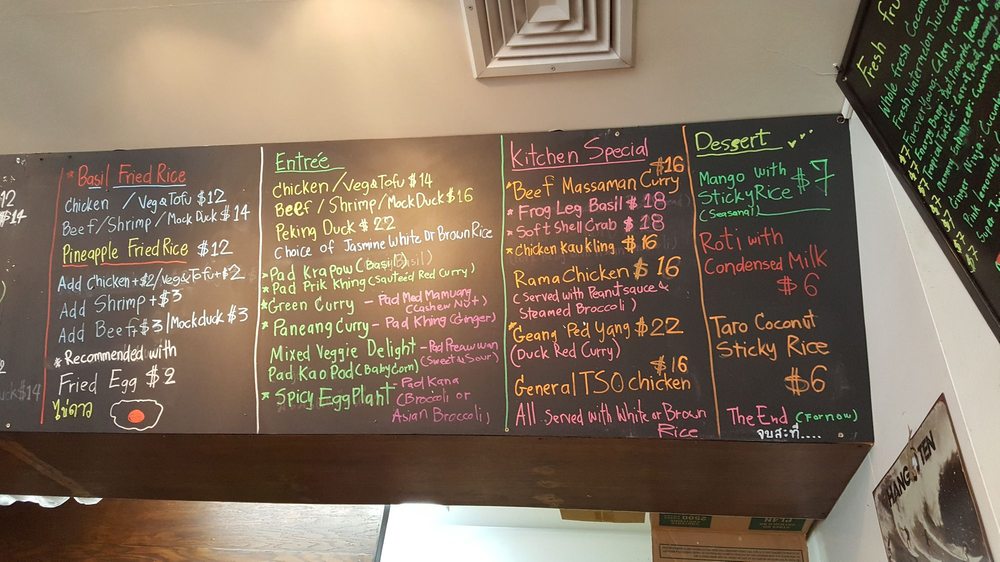 12
$14
* Basil Fried Rice
Chicken / Veg & Tofu $12
Beef/Shrimp/Mock Duck $14
Pineapple Fried Rice $12
Add Chicken +$2/Veg&Tofu+$2
Add Shrimp +$3
Add Beef+$3/Mockduck $3
* Recommended with
Fried Egg $2
ไข่ดาว
Duck $14
Entrée
Chicken/Veg&Tofu $14
Beef/Shrimp/Mock Duck $16
Peking Duck $22
Choice of Jasmine White or Brown Rice
* Pad Krapow (Basil)
* Pad Prik Khing (Sauteed Red Curry)
* Green Curry - Pad Med Mamuang (Cashew Nut)
* Paneang Curry - Pad Khing (Ginger)
Mixed Veggie Delight - Pad Preawwan (Sweet & Sour)
Pad Kao Pod (Baby Corn)
* Spicy Eggplant - Pad Kana (Broccoli or Asian Broccoli)
Kitchen Special
$16
* Beef Massaman Curry
* Frog Leg Basil $18
* Soft Shell Crab $18
* Chicken Kau Kling $16
Rama Chicken $16
(Served with Peanut sauce &
Steamed Broccoli)
* Geang Ped Yang $22
(Duck Red Curry)
$16
General TSO chicken
All Served with White or Brown
Rice
Dessert
Mango with
Sticky Rice $7
(Seasanal)
Roti with
Condensed Milk
$6
Taro Coconut
Sticky Rice
$6
The End (For now)
จบสะที่....
Fresh
Whole Fresh Coconut
Fresh Watermelon Juice
$7 Forever Young: Celery, lemon,
HANG TEN
2500
PLAN